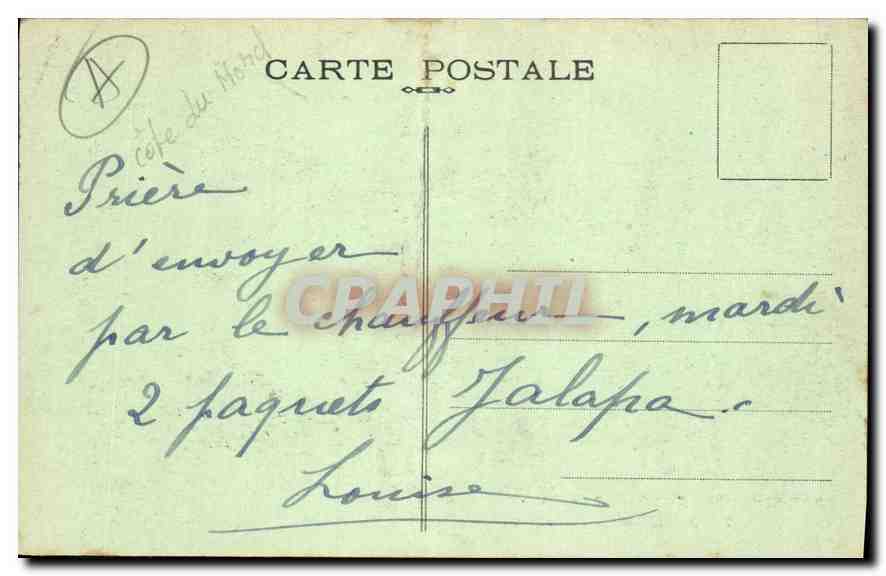 A
côte du Nord
CARTE POSTALE
Prière
d'envoyer
par le chauffeur, mardi
2 paquets Jalapa.
Louise
CPAPHIL